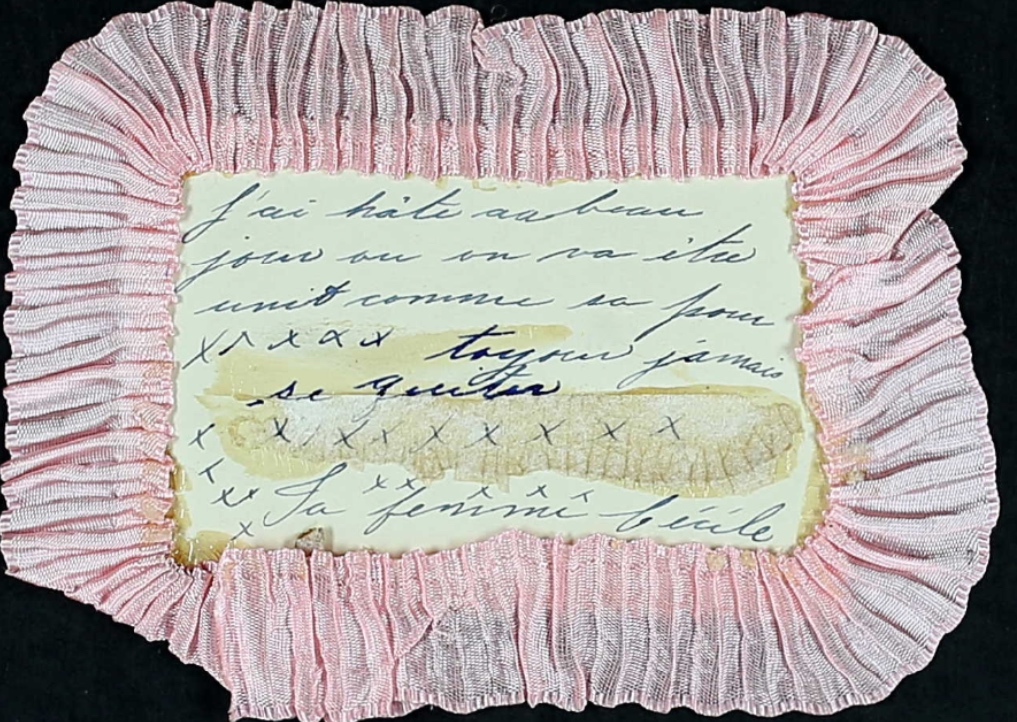 J'ai hâte aa beau
jour ou on va être
unit comme sa pour
x x x x x toujour jamais
se quitter
x x x x x x x x x
x
x x x x x x x
Ta femme Cécile
x